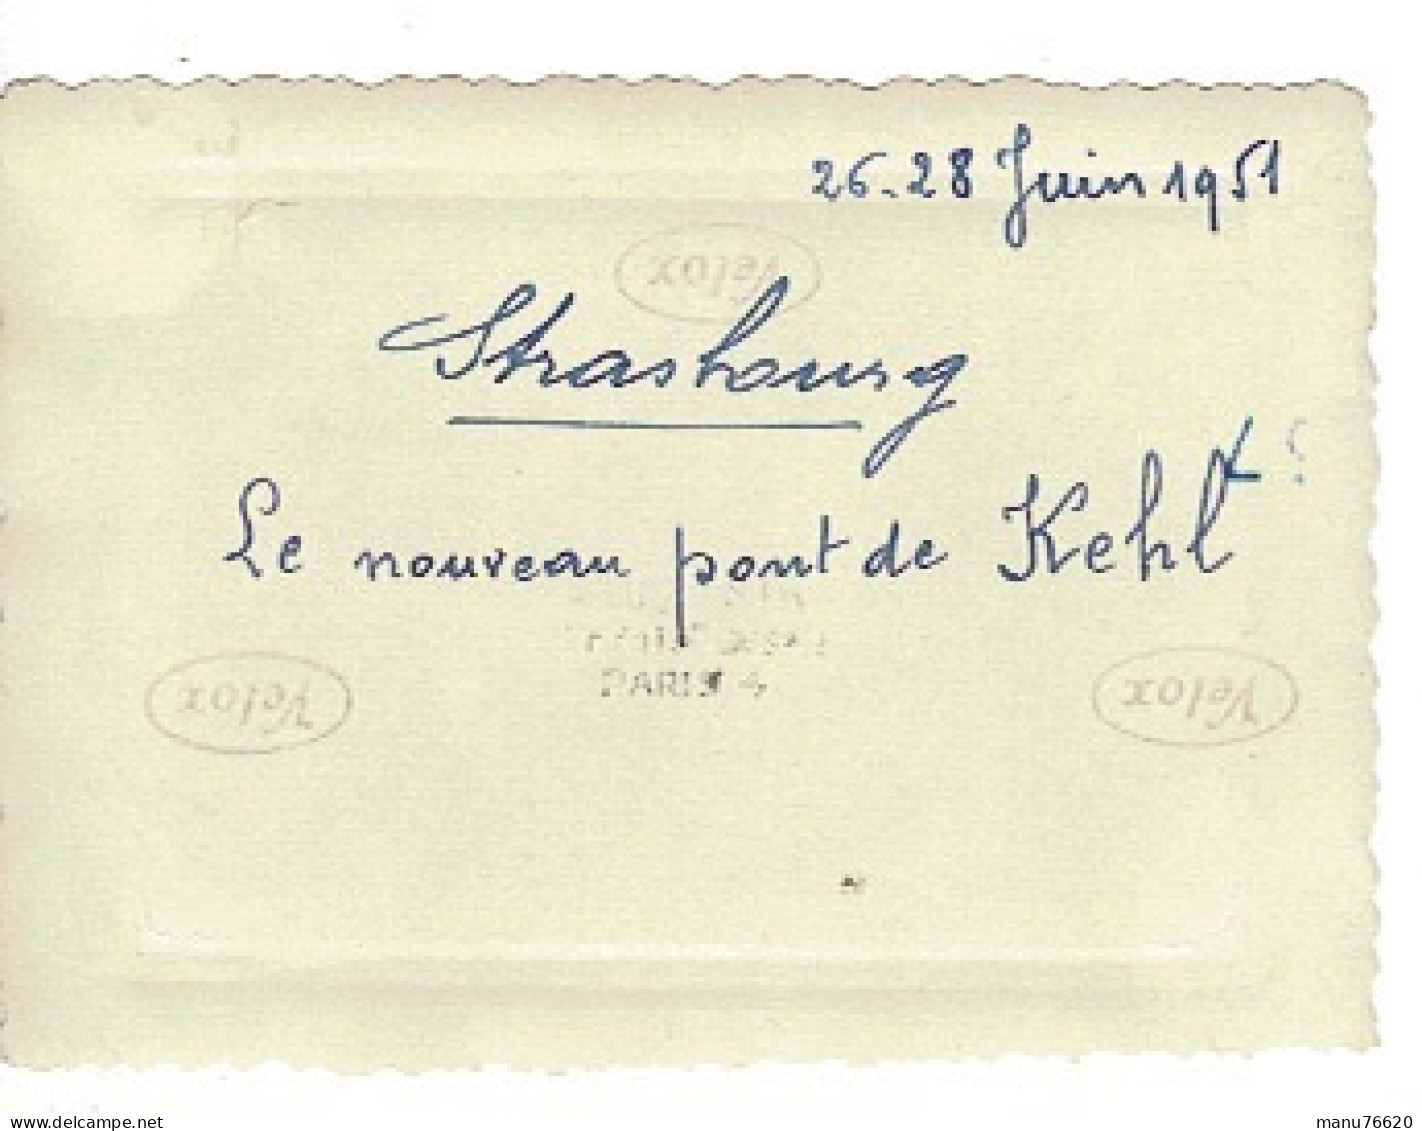 26-28 Juin 1951
Velox
Strasbourg
Le nouveau pont de Kehl
PARIS 4
Velox
Velox
delcampe.net
manu76620